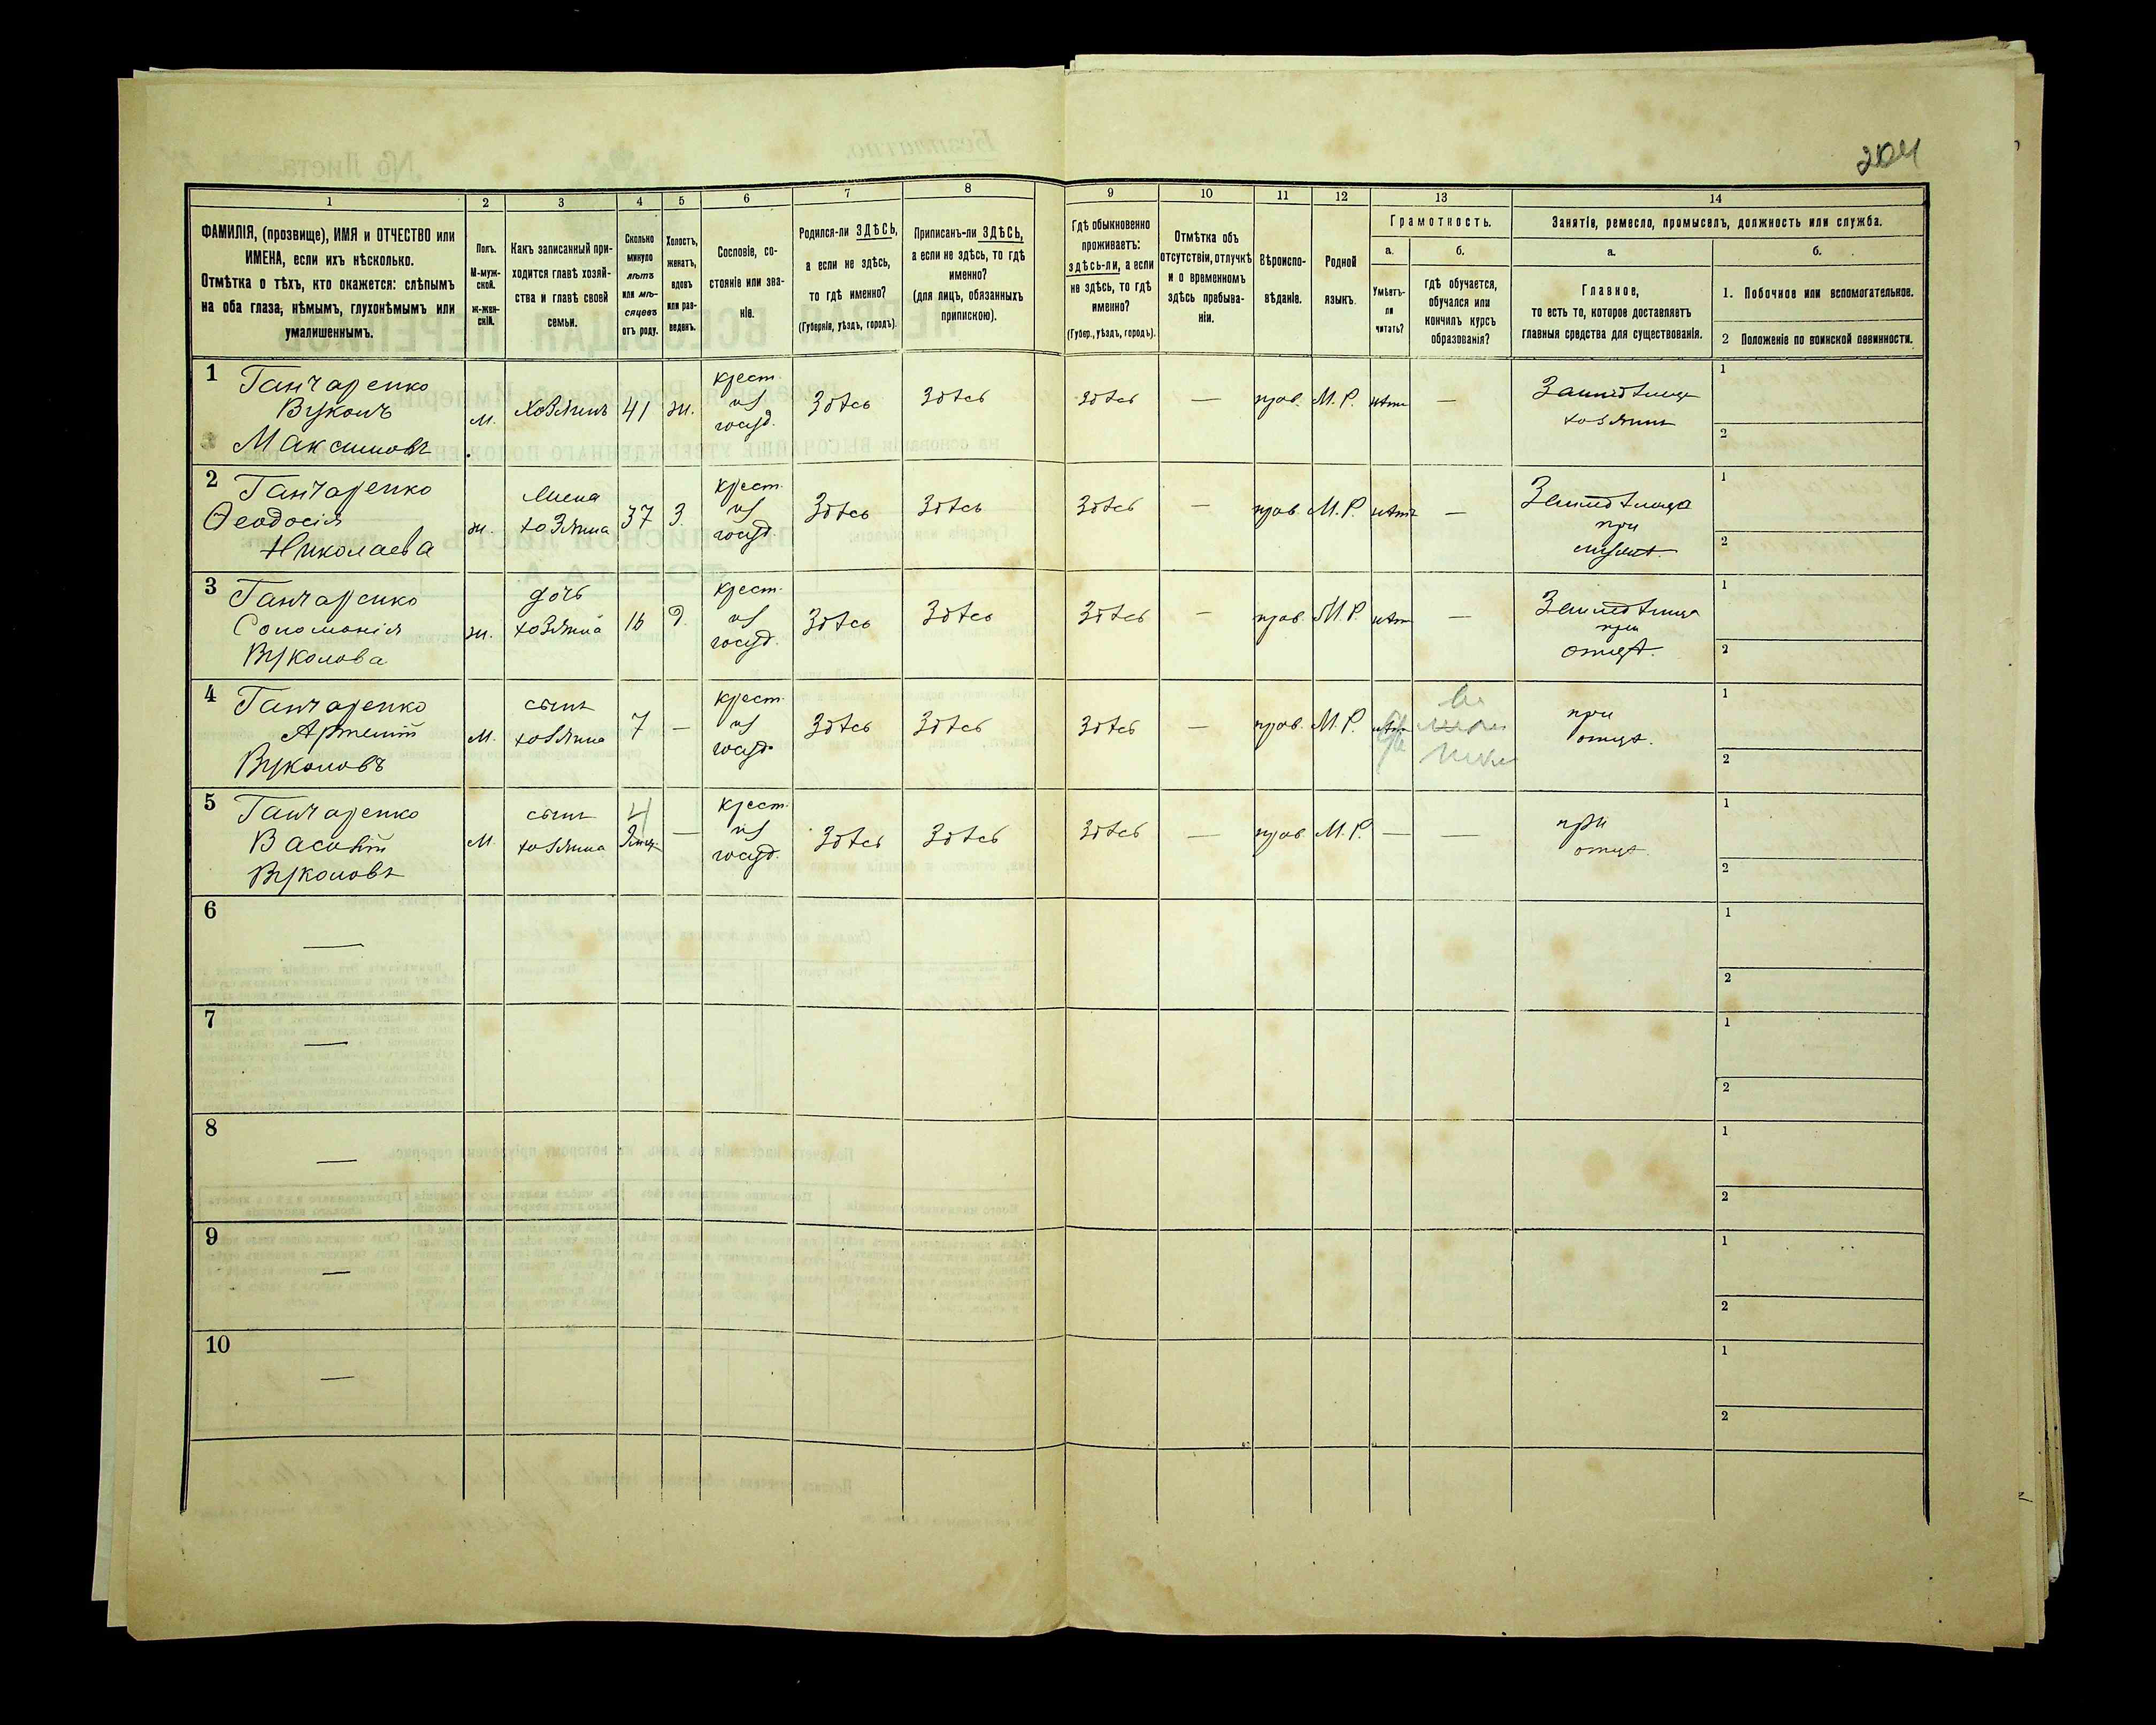 204
1
2
3
4
5
6
7
8
9
10
11
12
13
14
ФАМИЛІЯ, (прозвище), ИМЯ и ОТЧЕСТВО или
ИМЕНА, если ихъ нѣсколько.
Отмѣтка о тѣхъ, кто окажется: слѣпымъ
на оба глаза, нѣмымъ, глухонѣмымъ или
умалишеннымъ.
Полъ.
М-муж-
ской.
Ж-жен-
скій.
Какъ записанный при-
ходится главѣ хозяй-
ства и главѣ своей
семьи.
Сколько
минуло
лѣтъ
или мѣ-
сяцевъ
отъ роду.
Холостъ,
женатъ,
вдовъ
или раз-
веденъ.
Сословіе, со-
стояніе или зва-
ніе.
Родился-ли ЗДѢСЬ,
а если не здѣсь,
то гдѣ именно?
(Губернія, уѣздъ, городъ).
Приписанъ-ли ЗДѢСЬ,
а если не здѣсь, то гдѣ
именно?
(для лицъ, обязанныхъ
припискою).
Гдѣ обыкновенно
проживаетъ:
здѣсь-ли, а если
не здѣсь, то гдѣ
именно?
(Губер., уѣздъ, городъ).
Отмѣтка объ
отсутствіи, отлучкѣ
и о временномъ
здѣсь пребыва-
ніи.
Вѣроиспо-
вѣданіе.
Родной
языкъ.
Грамотность.
а.
Умѣетъ-
ли
читать?
б.
гдѣ обучается,
обучался или
кончилъ курсъ
образованія?
Занятіе, ремесло, промыселъ, должность или служба.
а.
Главное,
то есть то, которое доставляетъ
главныя средства для существованія.
б.
1. Побочное или вспомогательное.
2 Положеніе по воинской повинности.
1
Ганчаренко
Вуколъ
Максимовъ
м.
хозяинъ
41
ж.
крест.
из
госуд.
Здѣсь
Здѣсь
здѣсь
—
прав.
М.Р.
нѣтъ
—
хозяинъ
1
2
2
Ганчаренко
Ѳеодосія
Николаева
ж.
жена
хозяина
37
З
крест.
из
госуд.
Здѣсь
Здѣсь
Здѣсь
—
прав.
М.Р.
нѣтъ
—
при
мужѣ.
1
2
3
Ганчаренко
Соломонія
Вуколова
ж.
дочь
хозяина
16
Д
крест.
из
госуд.
Здѣсь
Здѣсь
Здѣсь
—
прав.
М.Р.
нѣтъ
—
при
отцѣ.
1
2
4
Ганчаренко
Артемій
Вуколовъ
м.
сынъ
хозяина
7
—
крест.
из
госуд.
Здѣсь
Здѣсь
Здѣсь
—
прав.
М.Р.
нѣтъ
при
отцѣ.
1
2
5
Ганчаренко
Василій
Вуколовъ
м.
сынъ
хозяина
4
—
крест.
из
госуд.
Здѣсь
Здѣсь
Здѣсь
—
прав.
М.Р.
—
—
при
отцѣ.
1
2
6
—
1
2
7
—
1
2
8
—
1
2
9
—
1
2
10
—
1
2